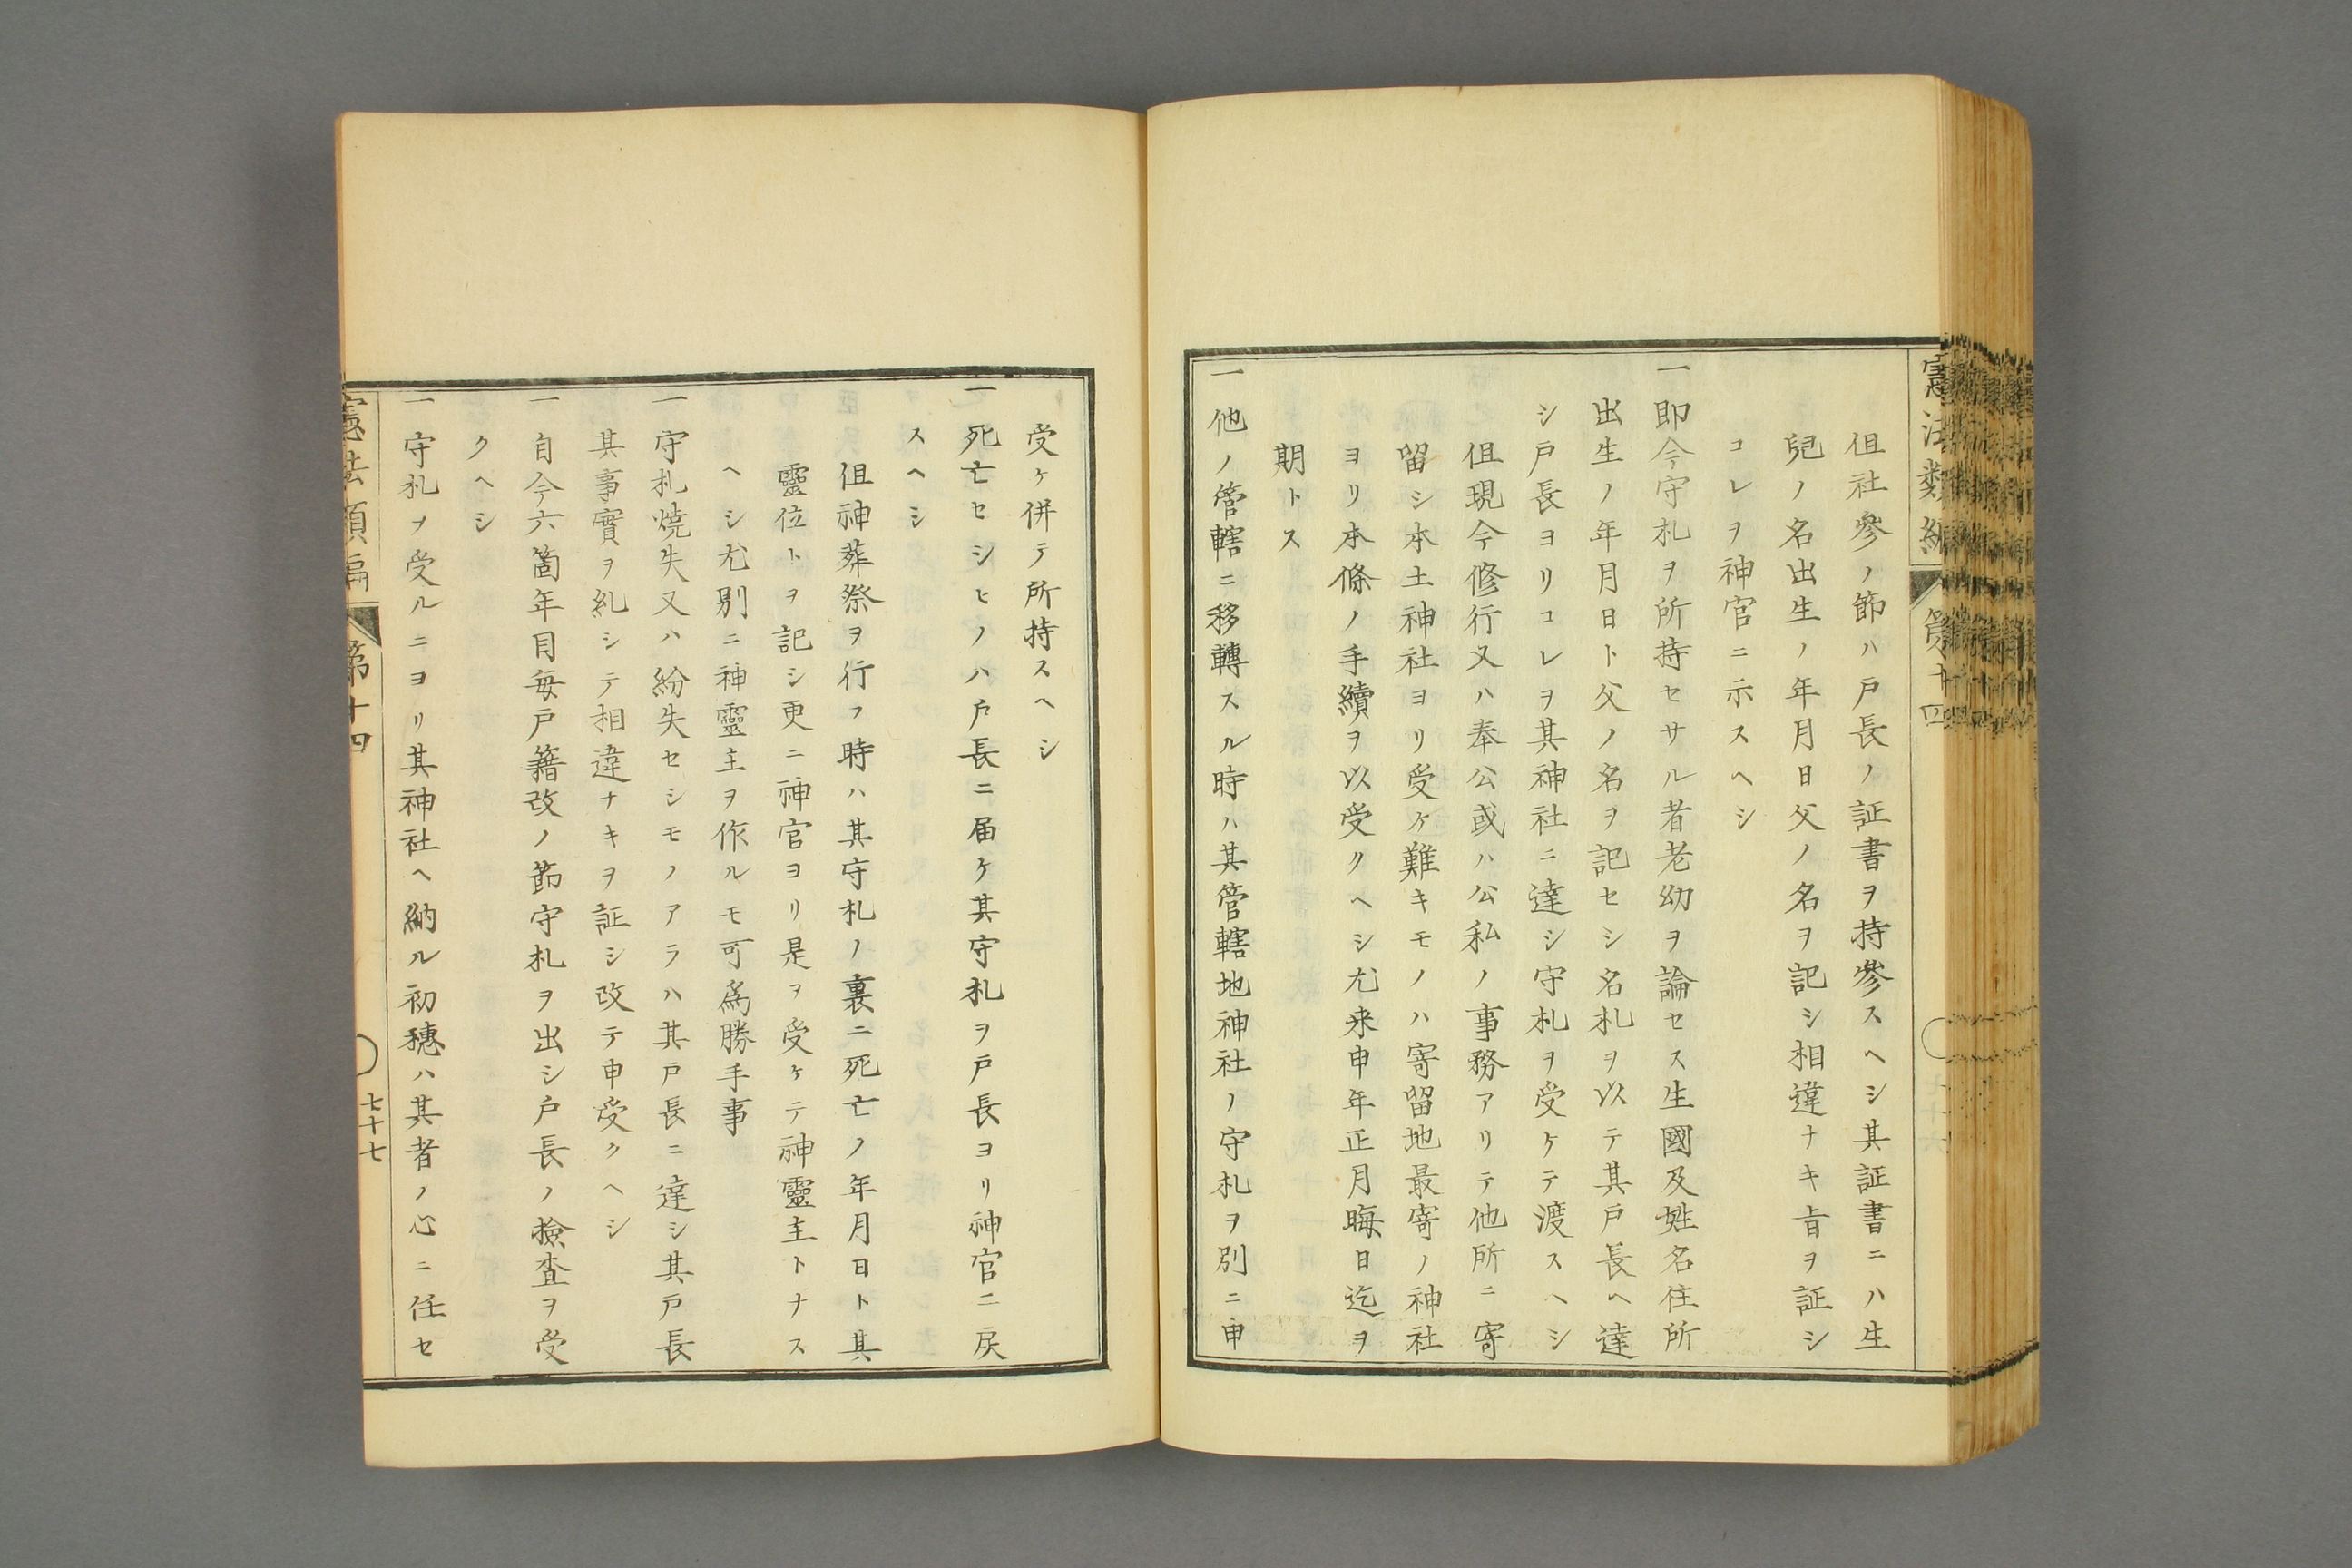 憲法類編 第十四
伹社參ノ節ハ戸長ノ証書ヲ持參スヘシ其証書ニハ生
兒ノ名出生ノ年月日父ノ名ヲ記シ相違ナキ旨ヲ証シ
コレヲ神官ニ示スヘシ
一即今守札ヲ所持セサル者老幼ヲ論セス生國及姓名住所
出生ノ年月日ト父ノ名ヲ記セシ名札ヲ以テ其戸長ヘ達
シ戸長ヨリコレヲ其神社ニ達シ守札ヲ受ケテ渡スヘシ
伹現今修行又ハ奉公或ハ公私ノ事務アリテ他所ニ寄
留シ本土神社ヨリ受ケ難キモノハ寄留地最寄ノ神社
ヨリ本條ノ手續ヲ以受クヘシ尤来申年正月晦日迄ヲ
期トス
一他ノ管轄ニ移轉スル時ハ其管轄地神社ノ守札ヲ別ニ申
受ケ併テ所持スヘシ
一死亡セシヒノハ戸長ニ届ケ其守札ヲ戸長ヨリ神官ニ戻
スヘシ
伹神葬祭ヲ行フ時ハ其守札ノ裏ニ死亡ノ年月日ト其
靈位トヲ記シ更ニ神官ヨリ是ヲ受ケテ神靈主トナス
ヘシ尤別ニ神靈主ヲ作ルモ可爲勝手事
一守札焼失又ハ紛失セシモノアラハ其戸長ニ達シ其戸長
其事實ヲ糺シテ相違ナキヲ証シ改テ申受クヘシ
一自今六箇年目毎戸籍改ノ節守札ヲ出シ戸長ノ撿査ヲ受
クヘシ
一守札ヲ受ルニヨリ其神社ヘ納ル初穗ハ其者ノ心ニ任セ
憲法類編 第十四 七十七